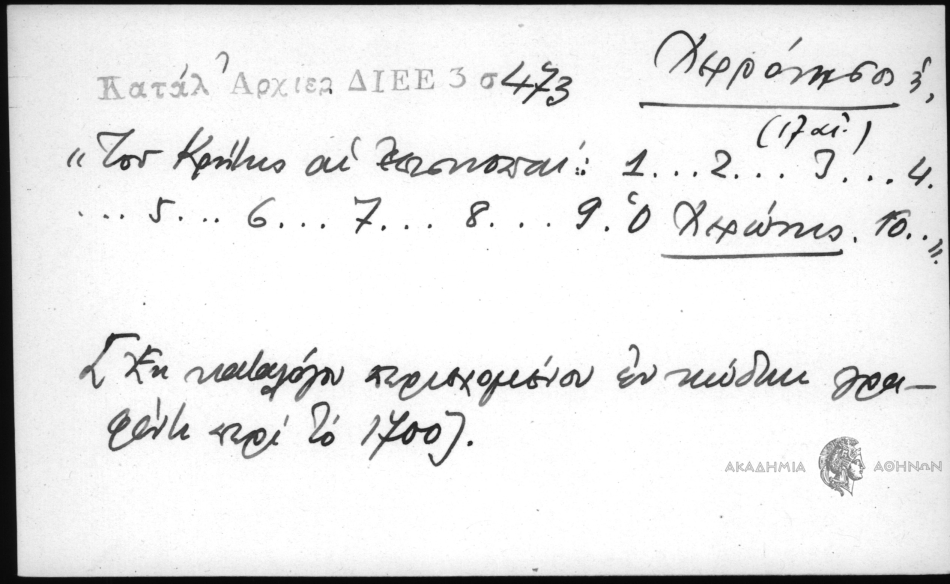 Κατάλ Ἀρχιερ ΔΙΕΕ 3 σ 473
Χερρόνησος ἡ,
(17 αἰ.)
"Του Κρήτης αἱ Ἐπισκοπαί: 1... 2... 3... 4.
... 5... 6... 7... 8... 9. Ὁ Χερώνης. 10..".
[Ἐκ καταλόγου περιεχομένου ἐν κώδικι γρα-
φέντι περὶ τὸ 1700].
ΑΚΑΔΗΜΙΑ ΑΘΗΝΩΝ